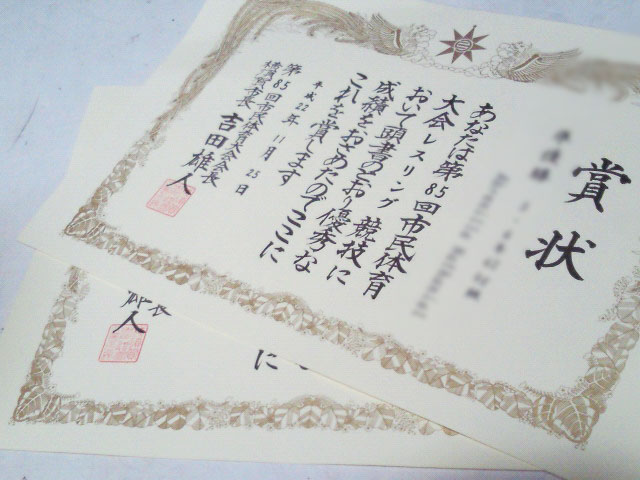 賞状
準優勝
あなたは第85回市民体育
大会レスリング競技に
おいて頭書のとおり優秀な
成績をおさめたのでここに
これを賞します
平成22年11月23日
第85回市民体育大会会長
横須賀市長 吉田雄人
に
人